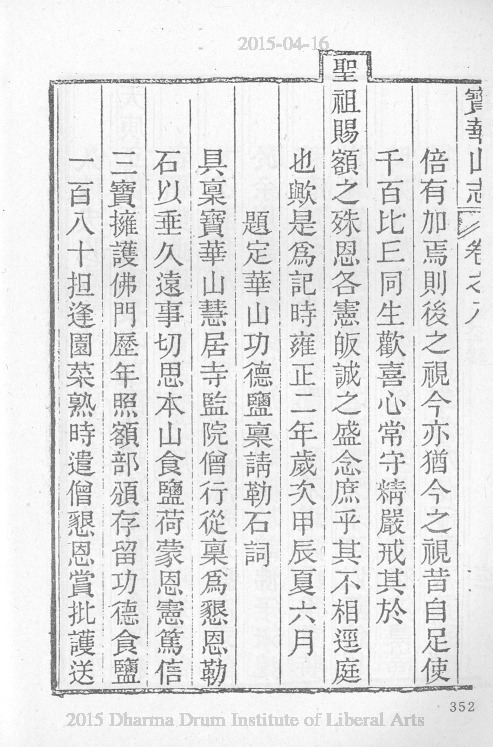 2015-04-16
寶華山志 卷之八
倍有加焉則後之視今亦猶今之視昔自足使
千百比丘同生歡喜心常守精嚴戒其於
聖祖賜額之殊恩各憲皈誠之盛念庶乎其不相逕庭
也歟是爲記時雍正二年歲次甲辰夏六月
題定華山功德鹽稟請勒石詞
具稟寶華山慧居寺監院僧行從稟爲懇恩勒
石以垂久遠事切思本山食鹽荷蒙恩憲篤信
三寶擁護佛門歷年照額部頒存留功德食鹽
一百八十担逢園菜熟時遣僧懇恩賞批護送
352
2015 Dharma Drum Institute of Liberal Arts